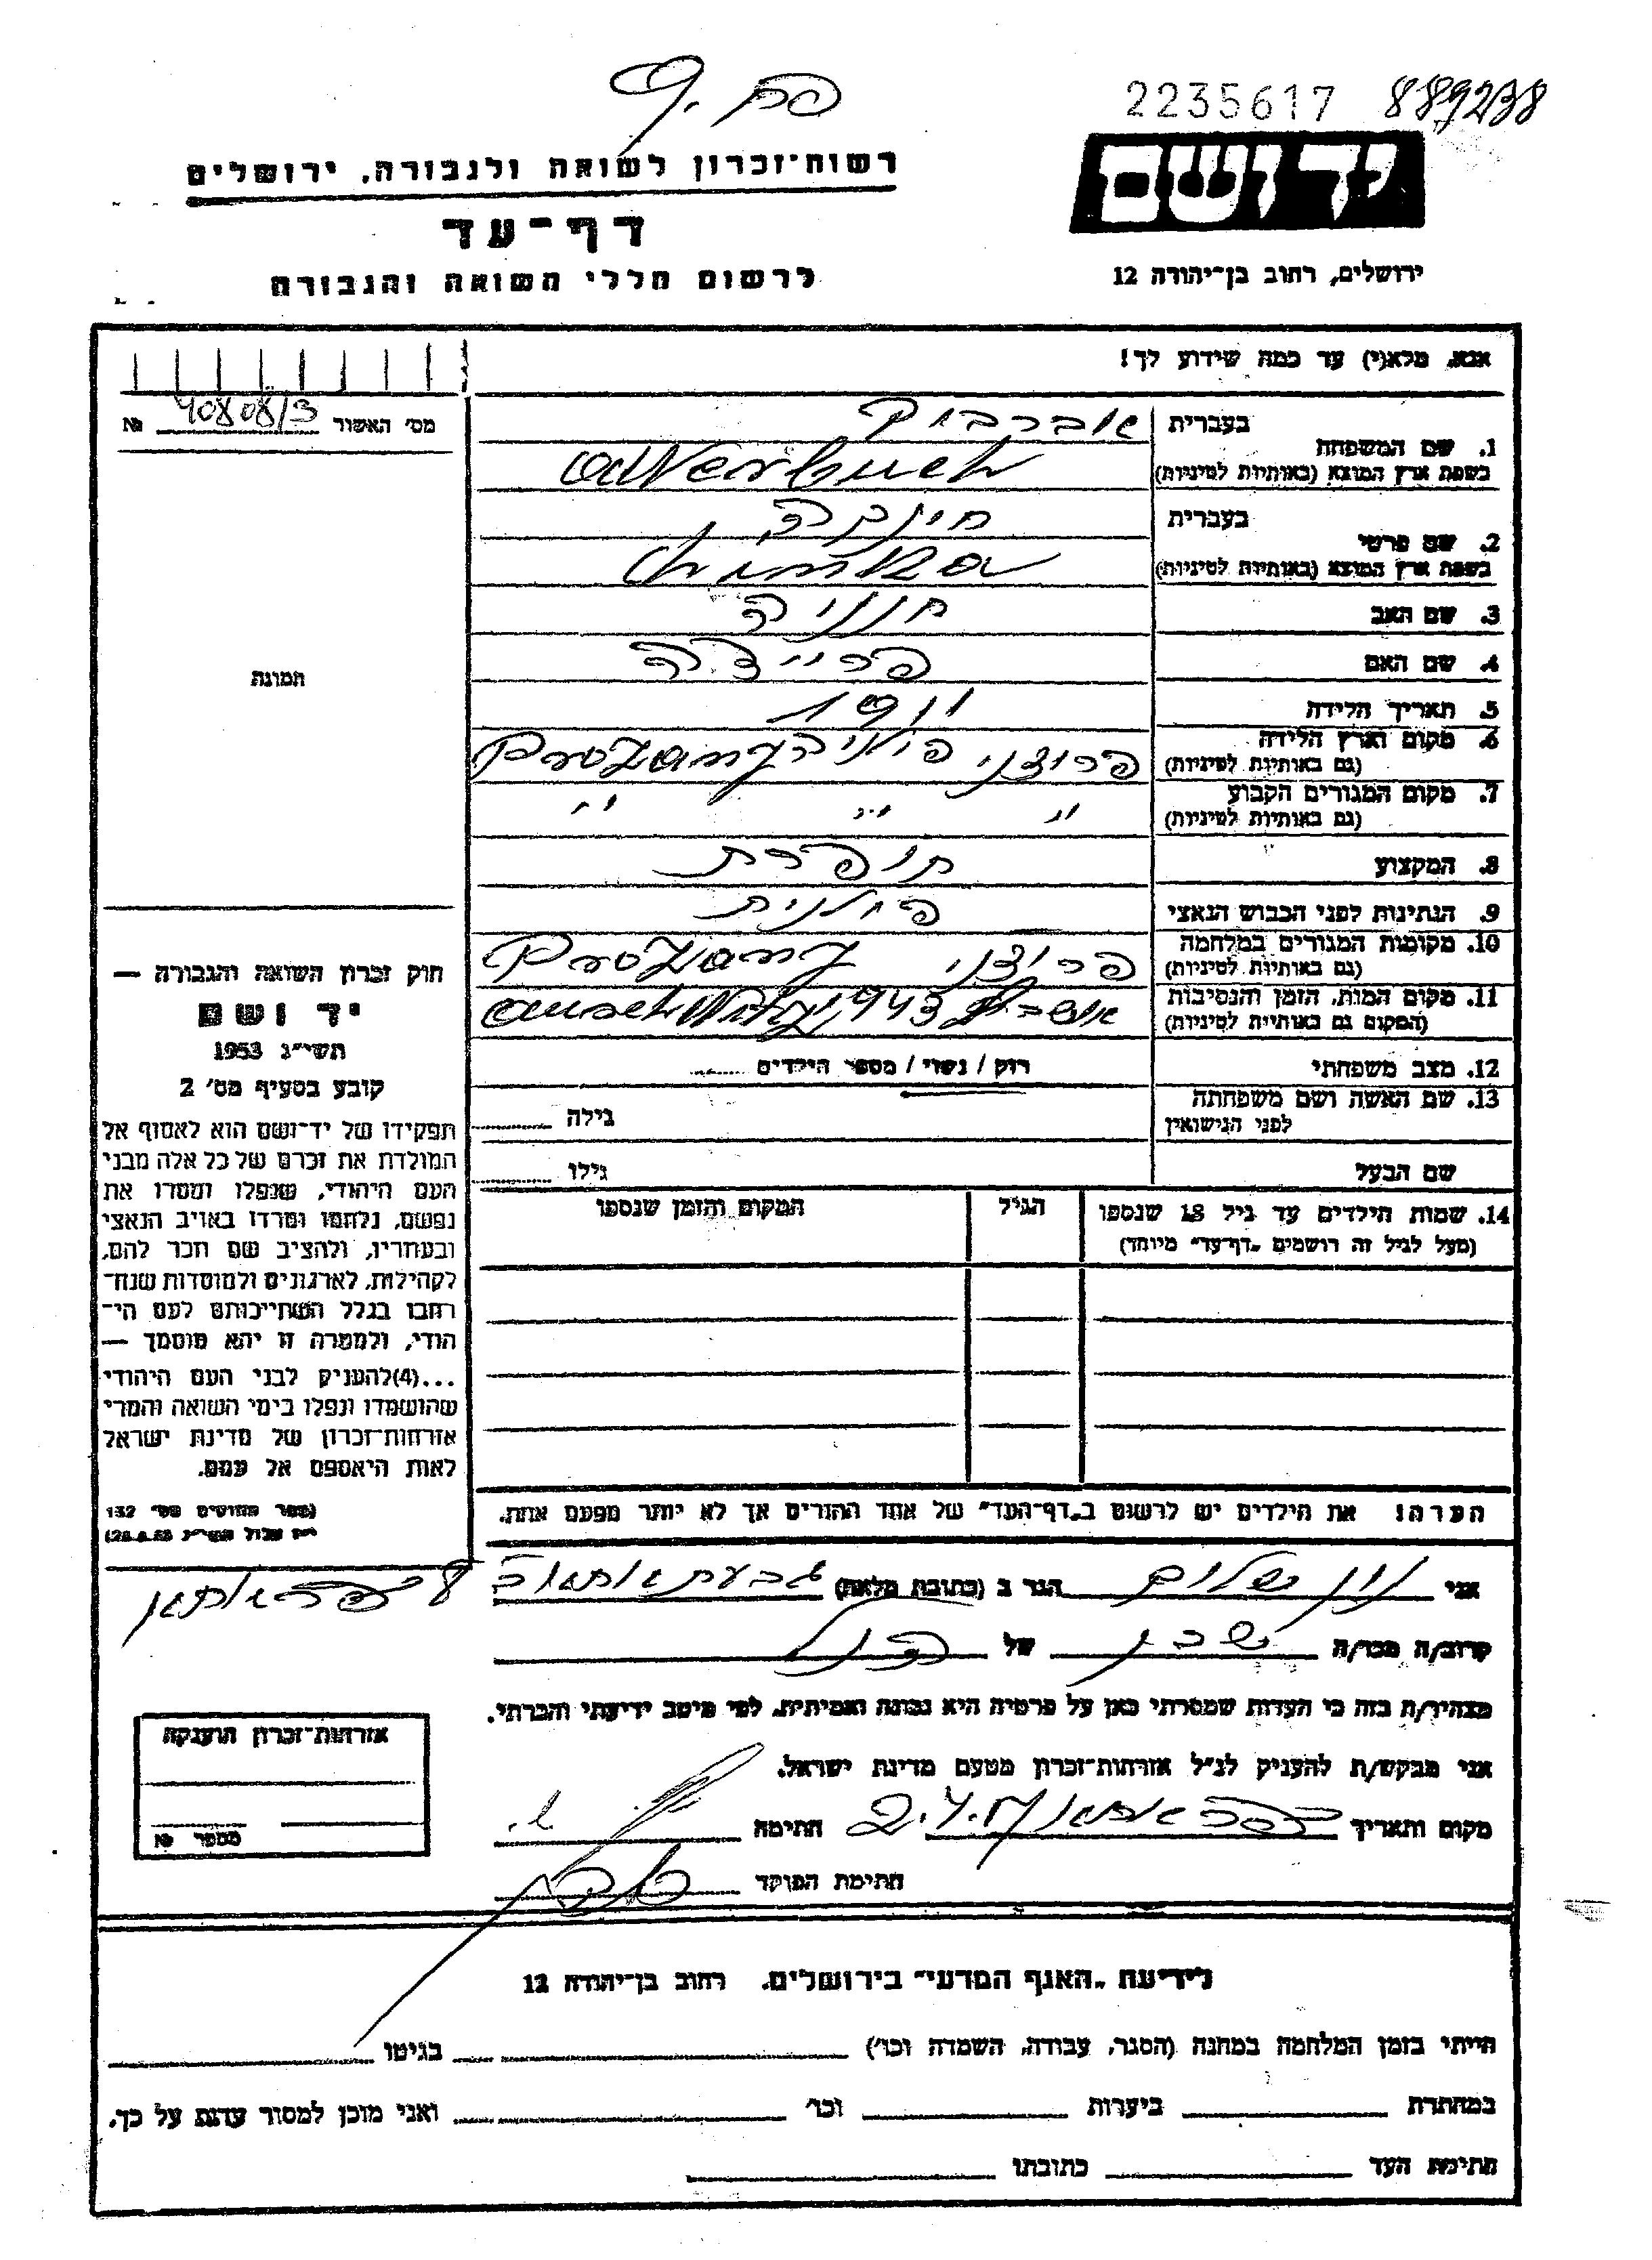 פח. 9
2235617 889238
יד ושם
ירושלים, רחוב בן־יהודה 12
רשות־זכרון לשואה ולגבורה, ירושלים
דף־עד
לרשום חללי השואה והגבורה
אנא, מלא(י) עד כמה שידוע לך!
מס' האשור 40808/3 №
תמונה
1. שם המשפחה
בעברית אברבוך
בשפת ארץ המוצא (באותיות לטיניות) Awerbuch
2. שם פרטי
בעברית חינקה
בשפת ארץ המוצא (באותיות לטיניות) Chinka
3. שם האב חנניה
4. שם האם פריידה
5. תאריך הלידה 1911
6. מקום וארץ הלידה
(גם באותיות לטיניות) פרוצ'ני פולניה Prozany
7. מקום המגורים הקבוע
(גם באותיות לטיניות) " " "
8. המקצוע תופרת
9. הנתינות לפני הכבוש הנאצי פולנית
10. מקומות המגורים במלחמה
(גם באותיות לטיניות) פרוצ'ני Prozany
11. מקום המות, הזמן והנסיבות
(המקום גם באותיות לטיניות) 1943 Auschwitz
12. מצב משפחתי רוק / נשוי / מספר הילדים
13. שם האשה ושם משפחתה
לפני הנישואין גילה
שם הבעל גילו
14. שמות הילדים עד גיל 18 שנספו הגיל המקום והזמן שנספו
(מעל לגיל זה רושמים "דף־עד" מיוחד)
הערה: את הילדים יש לרשום ב"דף־העד" של אחד ההורים אך לא יותר מפעם אחת.
חוק זכרון השואה והגבורה —
יד ושם
תשי"ג 1953
קובע בסעיף מס' 2
תפקידו של יד־ושם הוא לאסוף אל
המולדת את זכרם של כל אלה מבני
העם היהודי, שנפלו ומסרו את
נפשם, נלחמו ומרדו באויב הנאצי
ובעוזריו, ולהציב שם וזכר להם,
לקהילות, לארגונים ולמוסדות שנח־
רבו בגלל השתייכותם לעם הי־
הודי, ולמטרה זו יהא מוסמך —
...(4) להעניק לבני העם היהודי
שהושמדו ונפלו בימי השואה והמרי
אזרחות־זכרון של מדינת ישראל
לאות היאספם אל עמם.
(ספר החוקים מס' 132
י"ז אלול תשי"ג 28.8.53)
אני שלום הגר ב (כתובת מלאה)
קרוב/ה מכר/ה שכן של הנ"ל
מצהיר/ה בזה כי העדות שמסרתי כאן על פרטיה היא נכונה ואמיתית, לפי מיטב ידיעתי והכרתי.
אני מבקש/ת להעניק לנ"ל אזרחות־זכרון מטעם מדינת ישראל.
מקום ותאריך חתימה
חתימת הפוקד
אזרחות־זכרון הוענקה
מספר №
לידיעת "האגף המדעי" בירושלים. רחוב בן־יהודה 12
הייתי בזמן המלחמה במחנה (הסגר, עבודה, השמדה וכו') בגיטו
במחתרת ביערות וכו' ואני מוכן למסור עדות על כך.
חתימת העד כתובתו